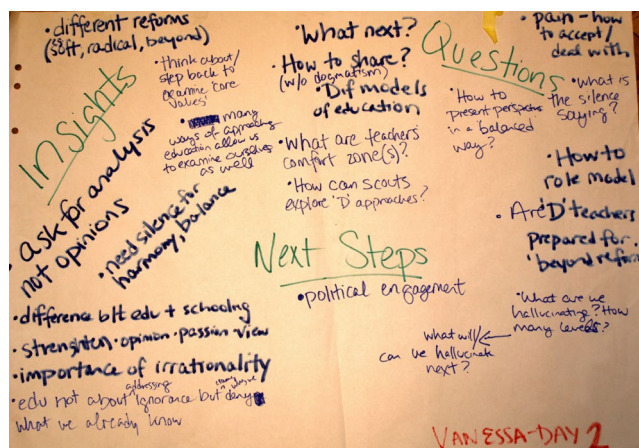 Insights
• different reforms
(soft, radical, beyond)
• think about/
step back to
examine 'core
values'
• many
ways of approaching
education allow us
to examine ourselves
as well
• ask for analysis
not opinions
• need silence for
harmony, balance
• difference btt edu + schooling
• strenghten • opinion • passion • view
• importance of irrationality
• edu not about addressing ignorance but deny
what we already know
Questions
• What next?
• How to share?
(w/o dogmatism)
• Dif models
of education
• What are teachers
comfort zone(s)?
• How can scouts
explore 'D' approaches?
• pain - how
to accept/
deal with
• How to
present perspectives
in a balanced
way?
• what is
the silence
saying?
• How to
role model
• Are 'D' teachers
prepared for
'beyond reform'
• What are we
hallucinating? How
many levels?
what will/
can we hallucinate
next?
Next Steps
• political engagement
VANESSA-DAY 2